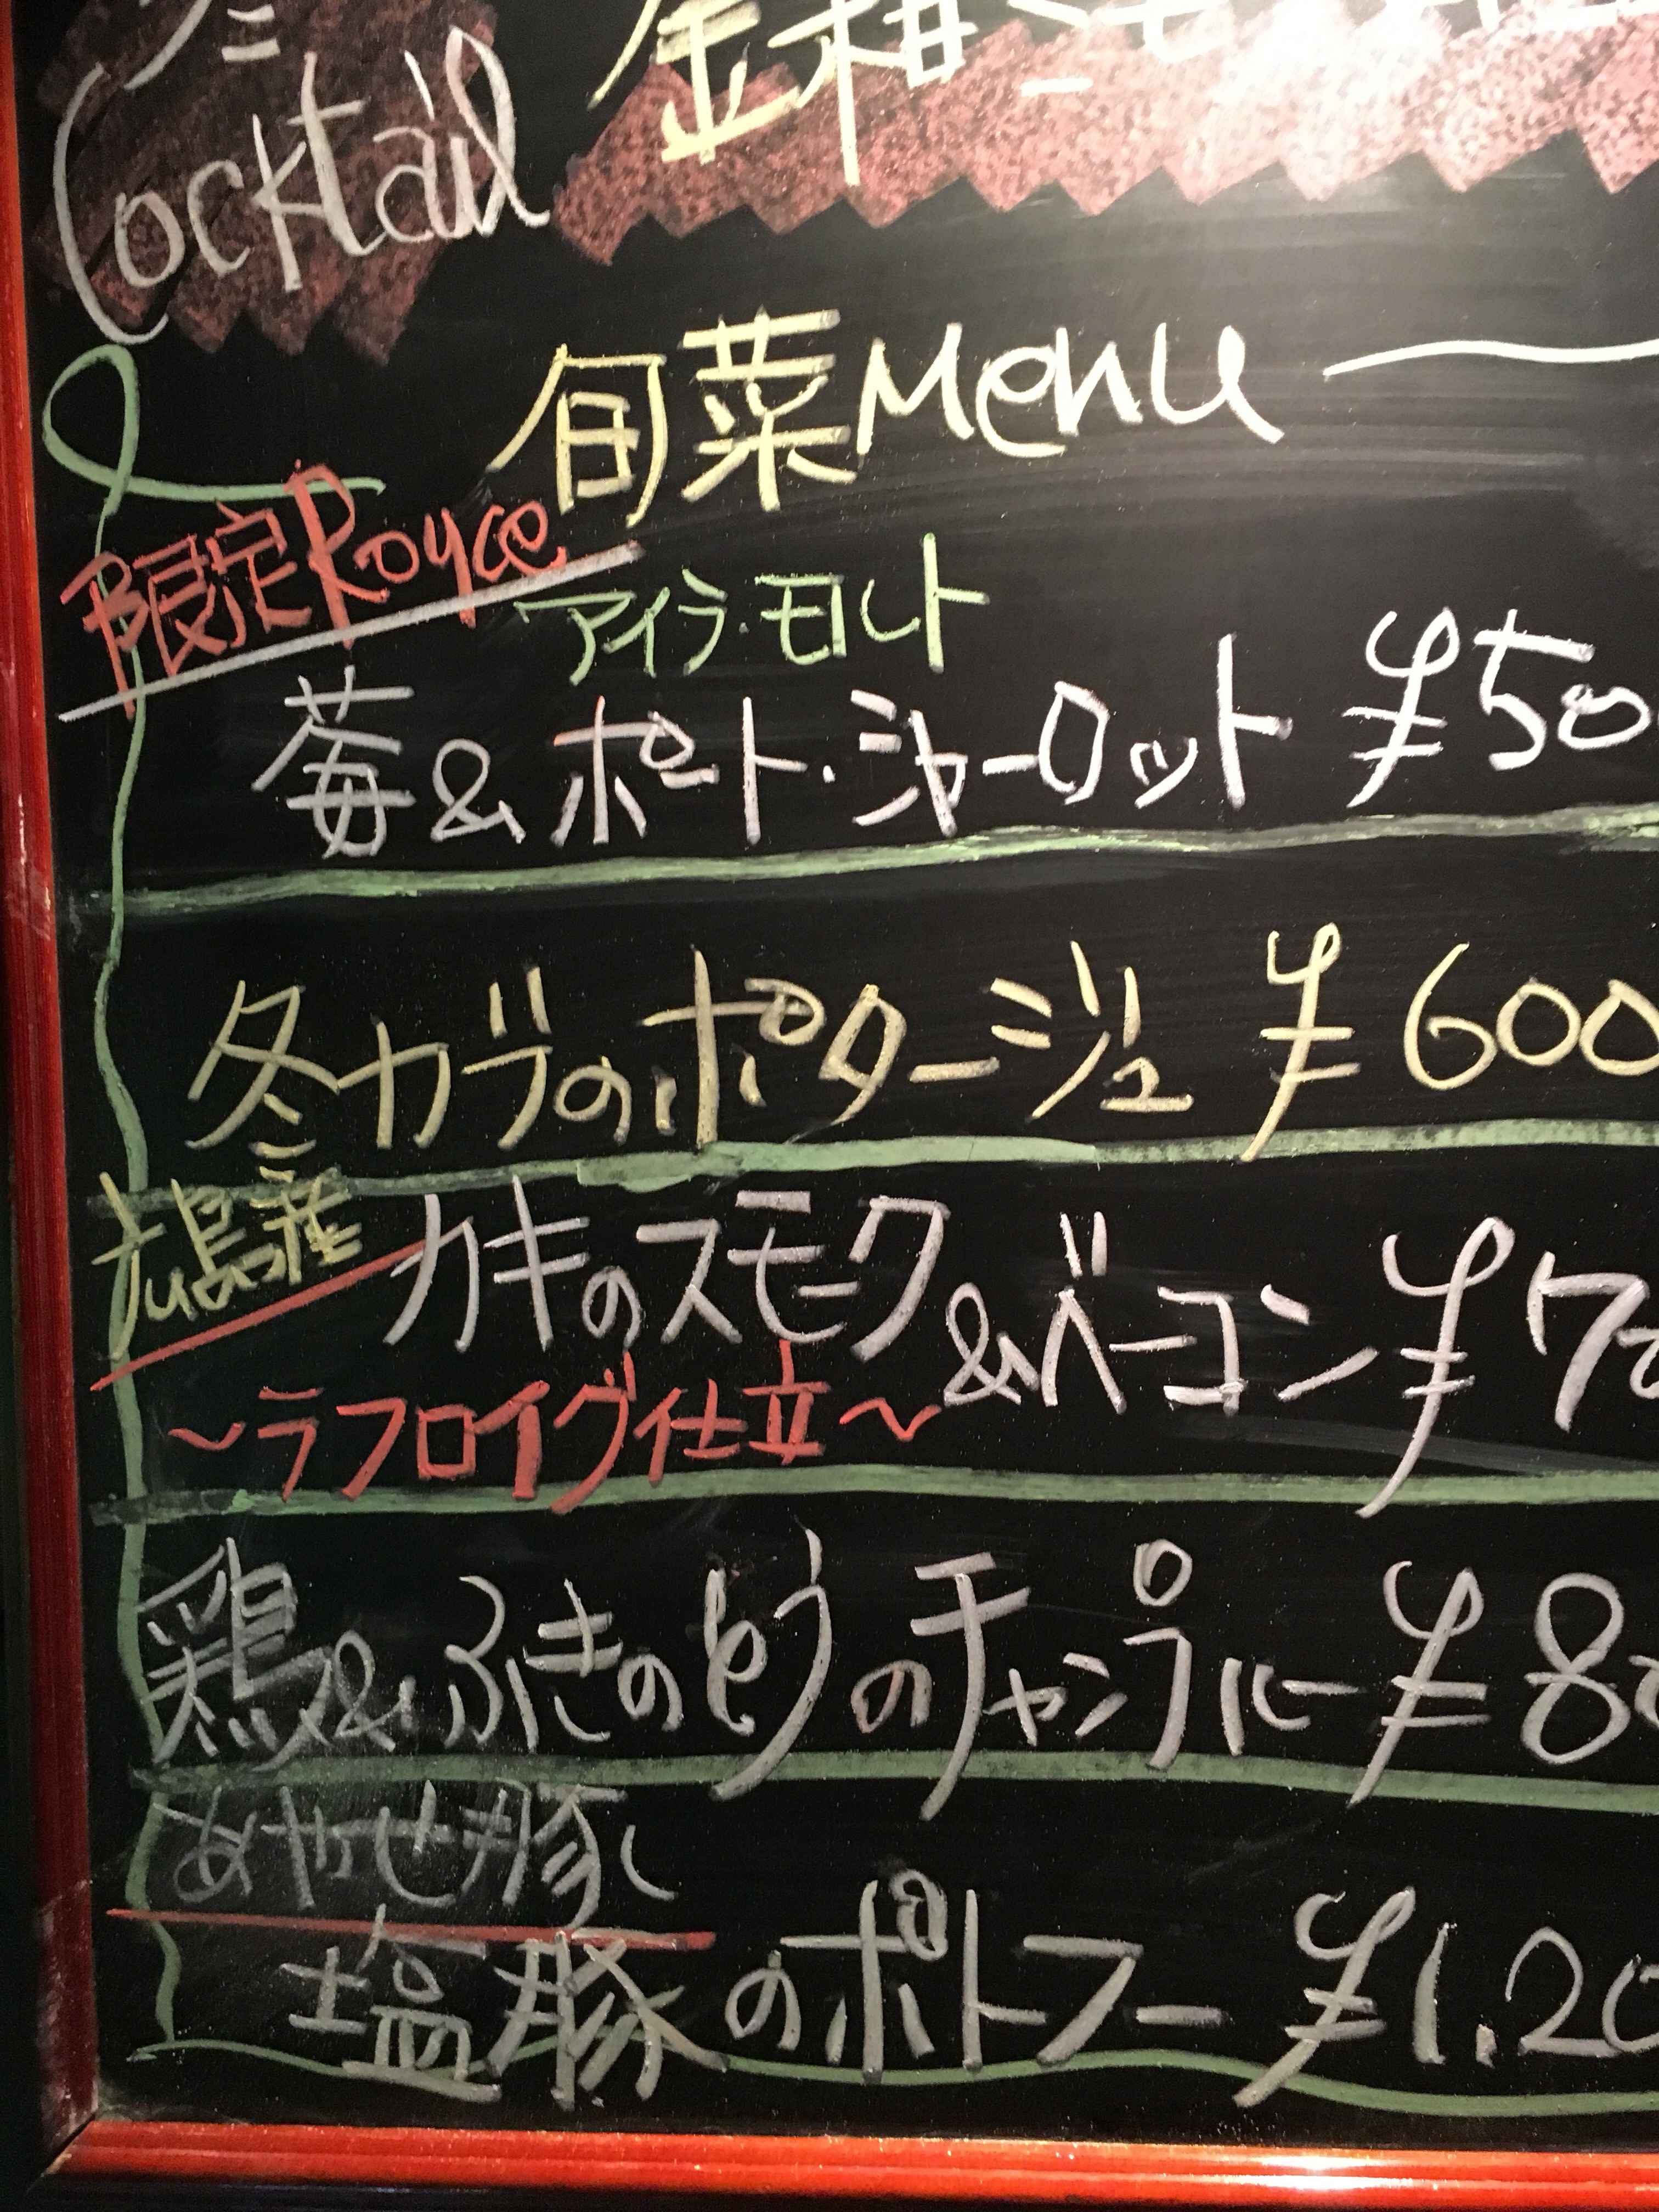 Cocktail
金柑
旬菜Menu
限定Royce
アイラ・モルト
苺&ポート・シャーロット ¥50
冬カブのポタージュ ¥600
広島産 カキのスモーク&ベーコン ¥70
～ラフロイグ仕立～
鶏&ふきのとうのチャンプルー ¥80
あやせ豚
塩豚のポトフー ¥1,20